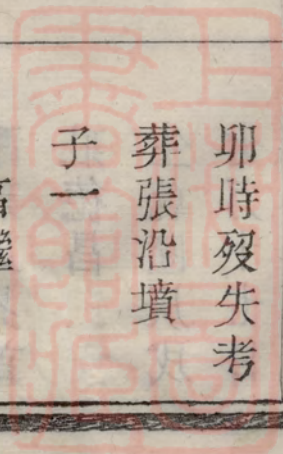 卯時歿失考
葬張沿墳
子一